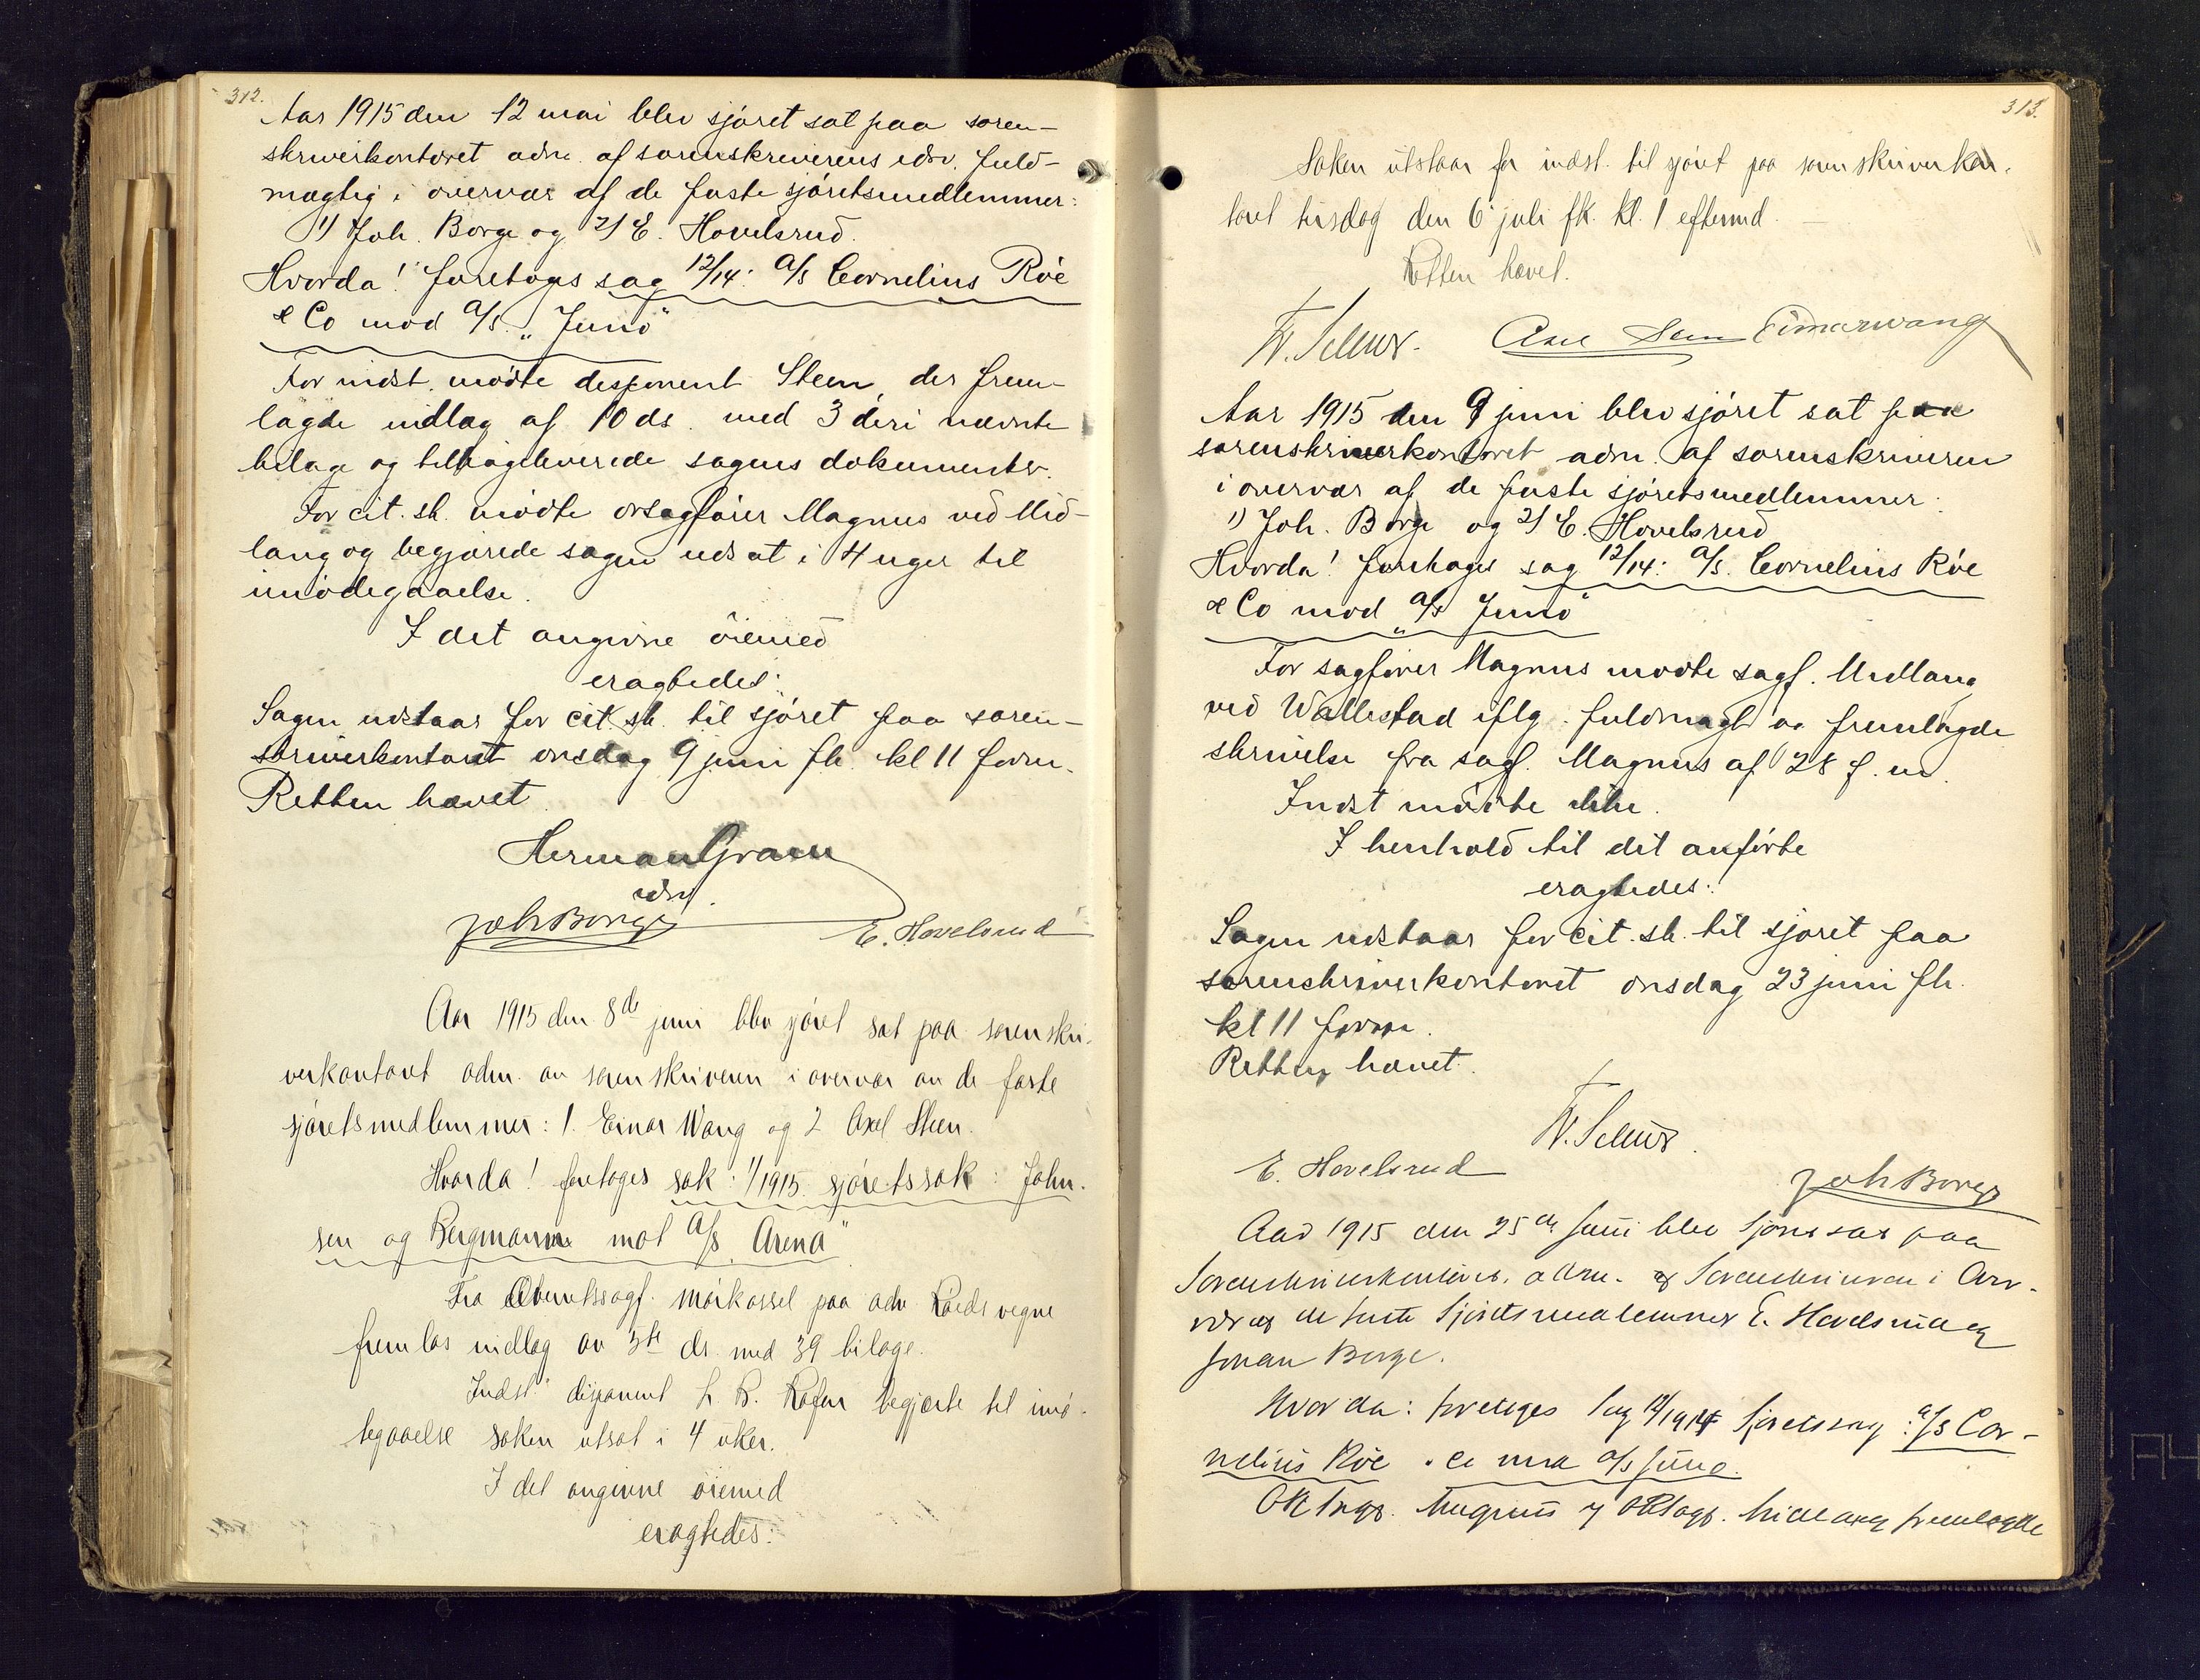 312.
Aar 1915 den 12 mai blev sjöret sat paa soren-
skriverkontoret adm. af sorenskriverens edsv. fuld-
mægtig i overvær af de faste sjöretsmedlemmer:
1) Joh. Borge og 2) E. Hovelsrud.
Hvorda! foretoges sag 12/14: A/S Cornelius Röe
& Co mod A/S „Juno"
For indst. mödte disponent Steen, der frem-
lagde indlæg af 10 ds. med 3 deri nævnte
bilage og tilbageleverede sagens dokumenter.
For cit. sk. mödte orsagförer Magnus ved Mid-
lang og begjærede sagen udsat i 4 uger til
imödegaaelse.
I det angivne öiemed
eragtedes:
Sagen udstaar for cit. sk. til sjöret paa soren-
skriverkontoret onsdag 9 juni fk. kl 11 form.
Retten hævet.
Herman Gram
edsv.
Joh Borge
E. Hovelsrud
Aar 1915 den 8de juni blev sjöret sat paa sorenskri-
verkontoret adm. av sorenskriveren i overvær av de faste
sjöretsmedlemmer: 1. Einar Wang og 2 Axel Steen.
Hvorda! foretoges sak: 1/1915 sjöretssak: John-
sen og Bergmann mot A/S „Arena"
Fra overretssagf. Mörkassel paa adv. Roeds vegne
fremlas indlæg av 3die ds. med 39 bilage.
Indst. disponent L. B. begjærte til imö-
tegaaelse saken utsat i 4 uker.
I det angivne öiemed
eragtedes:
313.
Saken utstaar for indst. til sjöret paa sorenskriverkon-
toret tirsdag den 6 juli fk. kl. 1 eftermd.
Retten hævet.
Axel Steen Einar Wang
Aar 1915 den 9 juni blev sjöret sat paa
sorenskriverkontoret adm. af sorenskriveren
i overvær af de faste sjöretsmedlemmer:
1) Joh. Borge og 2) E. Hovelsrud
Hvorda! foretoges sag 12/14: A/S. Cornelius Röe
& Co mod „A/S Juno"
For sagförer Magnus mödte sagf. Midlang
ved Wallestad iflg. fuldmagt og fremlagde
skrivelse fra sagf. Magnus af 28 f. m.
Indst mödte ikke.
I henhold til det anförte
eragtedes:
Sagen udstaar for cit. sk. til sjöret paa
sorenskriverkontoret onsdag 23 juni fk.
kl 11 form.
Retten hævet.
E. Hovelsrud
Joh Borge
Aar 1915 den 25de juni blev Sjöret sat paa
Sorenskriverkontoret, adm. af Sorenskriveren i Over-
vær af de faste Sjöretsmedlemmer E. Hovelsrud og
Johan Borge.
Hvorda: foretoges Sag 12/1914 Sjöretssag: A/S Cor-
nelius Röe & Co mod A/S Juno.
ORsagf. Magnus v/ ORsagf. Midlang fremlagde